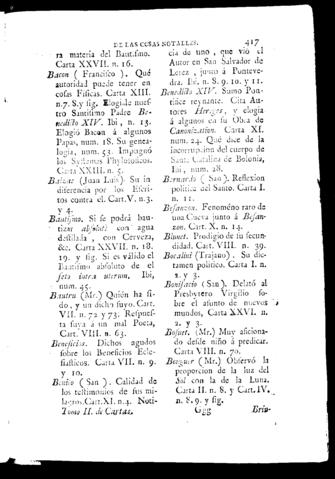 DE LAS COSAS NOTALLES. 417
ra materia del Bautismo.
Carta XXVII. n. 16.
Bacon ( Francisco ). Qué
autoridad puede tener en
cosas Fisicas. Carta XIII.
n. 7. 8. y sig. Elogiale nues-
tro Santisimo Padre Be-
nedicto XIV. Ibi, n. 13.
Elogió Bacon á algunos
Papas, num. 18. Su genea-
logia, num. 53. Impugnó
los Systemas Phylosoficos.
Carta XXIII. n. 5.
Balzac (Juan Luis) Su in-
diferencia por los Escri-
tos contra el. Cart. V. n. 3.
y 4.
Bautismo. Si se podrá bau-
tizar absoluté con agua
destilada , con Cerveza,
&c. Carta XXVII. n. 18.
19. y sig. Si es válido el
Bautismo absoluto de el
feto intra uterum, Ibi,
num. 45.
Bautru (Mr.) Quién ha si-
do, y un dicho suyo. Cart.
VII. n. 72 y 73. Respues-
ta suya á un mal Poeta,
Cart. VIII. n. 63.
Beneficios. Dichos agudos
sobre los Beneficios Ecle-
siasticos. Carta VII. n. 9.
y 10.
Benito (San ). Calidad de
los testimonios de sus mi-
lagros. Cart. XI. n. 4. Noti-
Tomo II. de Cartas.
cia de uno , que vió el
Autor en San Salvador de
Lerez , junto á Ponteve-
dra. Ibi, n. 8. 9. 10. y 11.
Benedicto XIV. Sumo Pon-
tifice reynante. Cita Au-
tores Hereges, y elogia
á algunos en su Obra de
Canonization. Carta XI.
num. 24. Qué dice de la
incorrupcion del cuerpo de
Santa Catalina de Bolonia,
Ibi, num. 28.
Bernardo ( San ). Reflexion
politica del Santo. Carta I.
n. 11.
Besanzon. Fenomeno raro de
una Cueva junto á Besan-
zon. Cart. X. n. 14.
Blunet. Prodigio de su fecun-
didad. Cart. VIII. n. 39.
Bocalini (Trajano). Su dic-
tamen politico. Carta I. n.
2. y 3.
Bonifacio (San). Delató al
Presbytero Virgilio so-
bre el asunto de nuevos
mundos, Carta XXVI. n.
2. y 3.
Bosuet. (Mr.) Muy aficiona-
do desde niño á predicar.
Carta VIII. n. 70.
Bouguer (Mr.) Observó la
proporcion de la luz del
Sol con la de la Luna.
Carta II. n. 8. y Cart. IV.
n. 8. 9. y sig.
Ggg Bria-